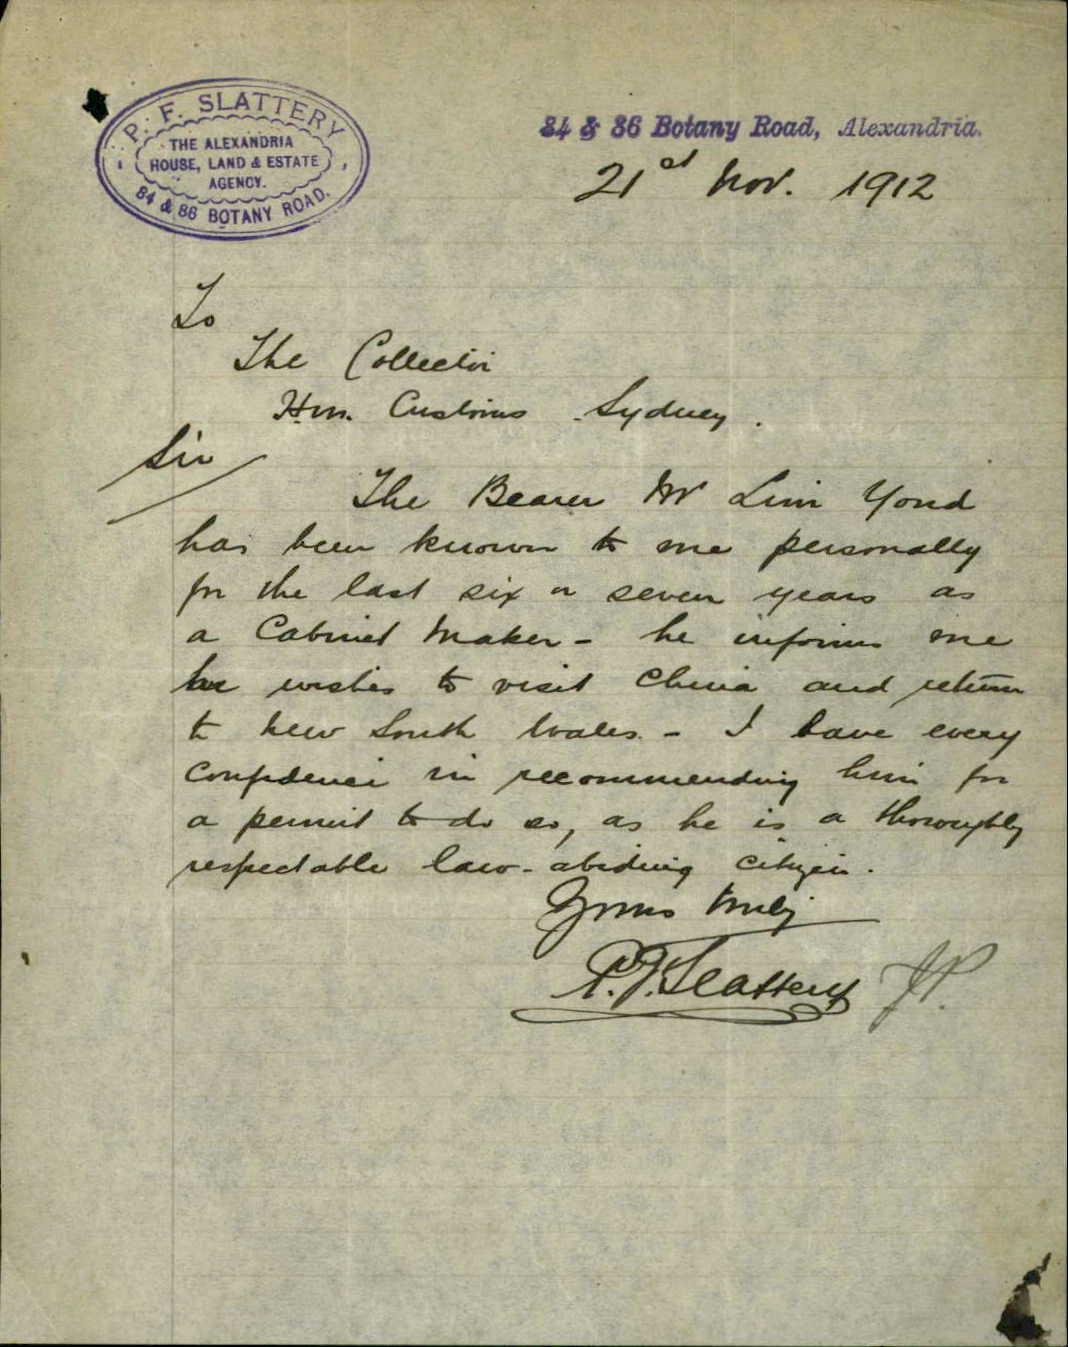 P. F. SLATTERY
THE ALEXANDRIA
HOUSE, LAND & ESTATE
AGENCY.
84 & 86 BOTANY ROAD.
84 & 86 Botany Road, Alexandria.
21st Nov. 1912
To
The Collector
H.M. Customs Sydney.
Sir
The Bearer Mr Lum Yond
has been known to me personally
for the last six or seven years as
a Cabinet Maker - he informs me
he wishes to visit China and return
to New South Wales. - I have every
confidence in recommending him for
a permit to do so, as he is a thoroughly
respectable law-abiding citizen.
Yours truly
P.F. Slattery JP.